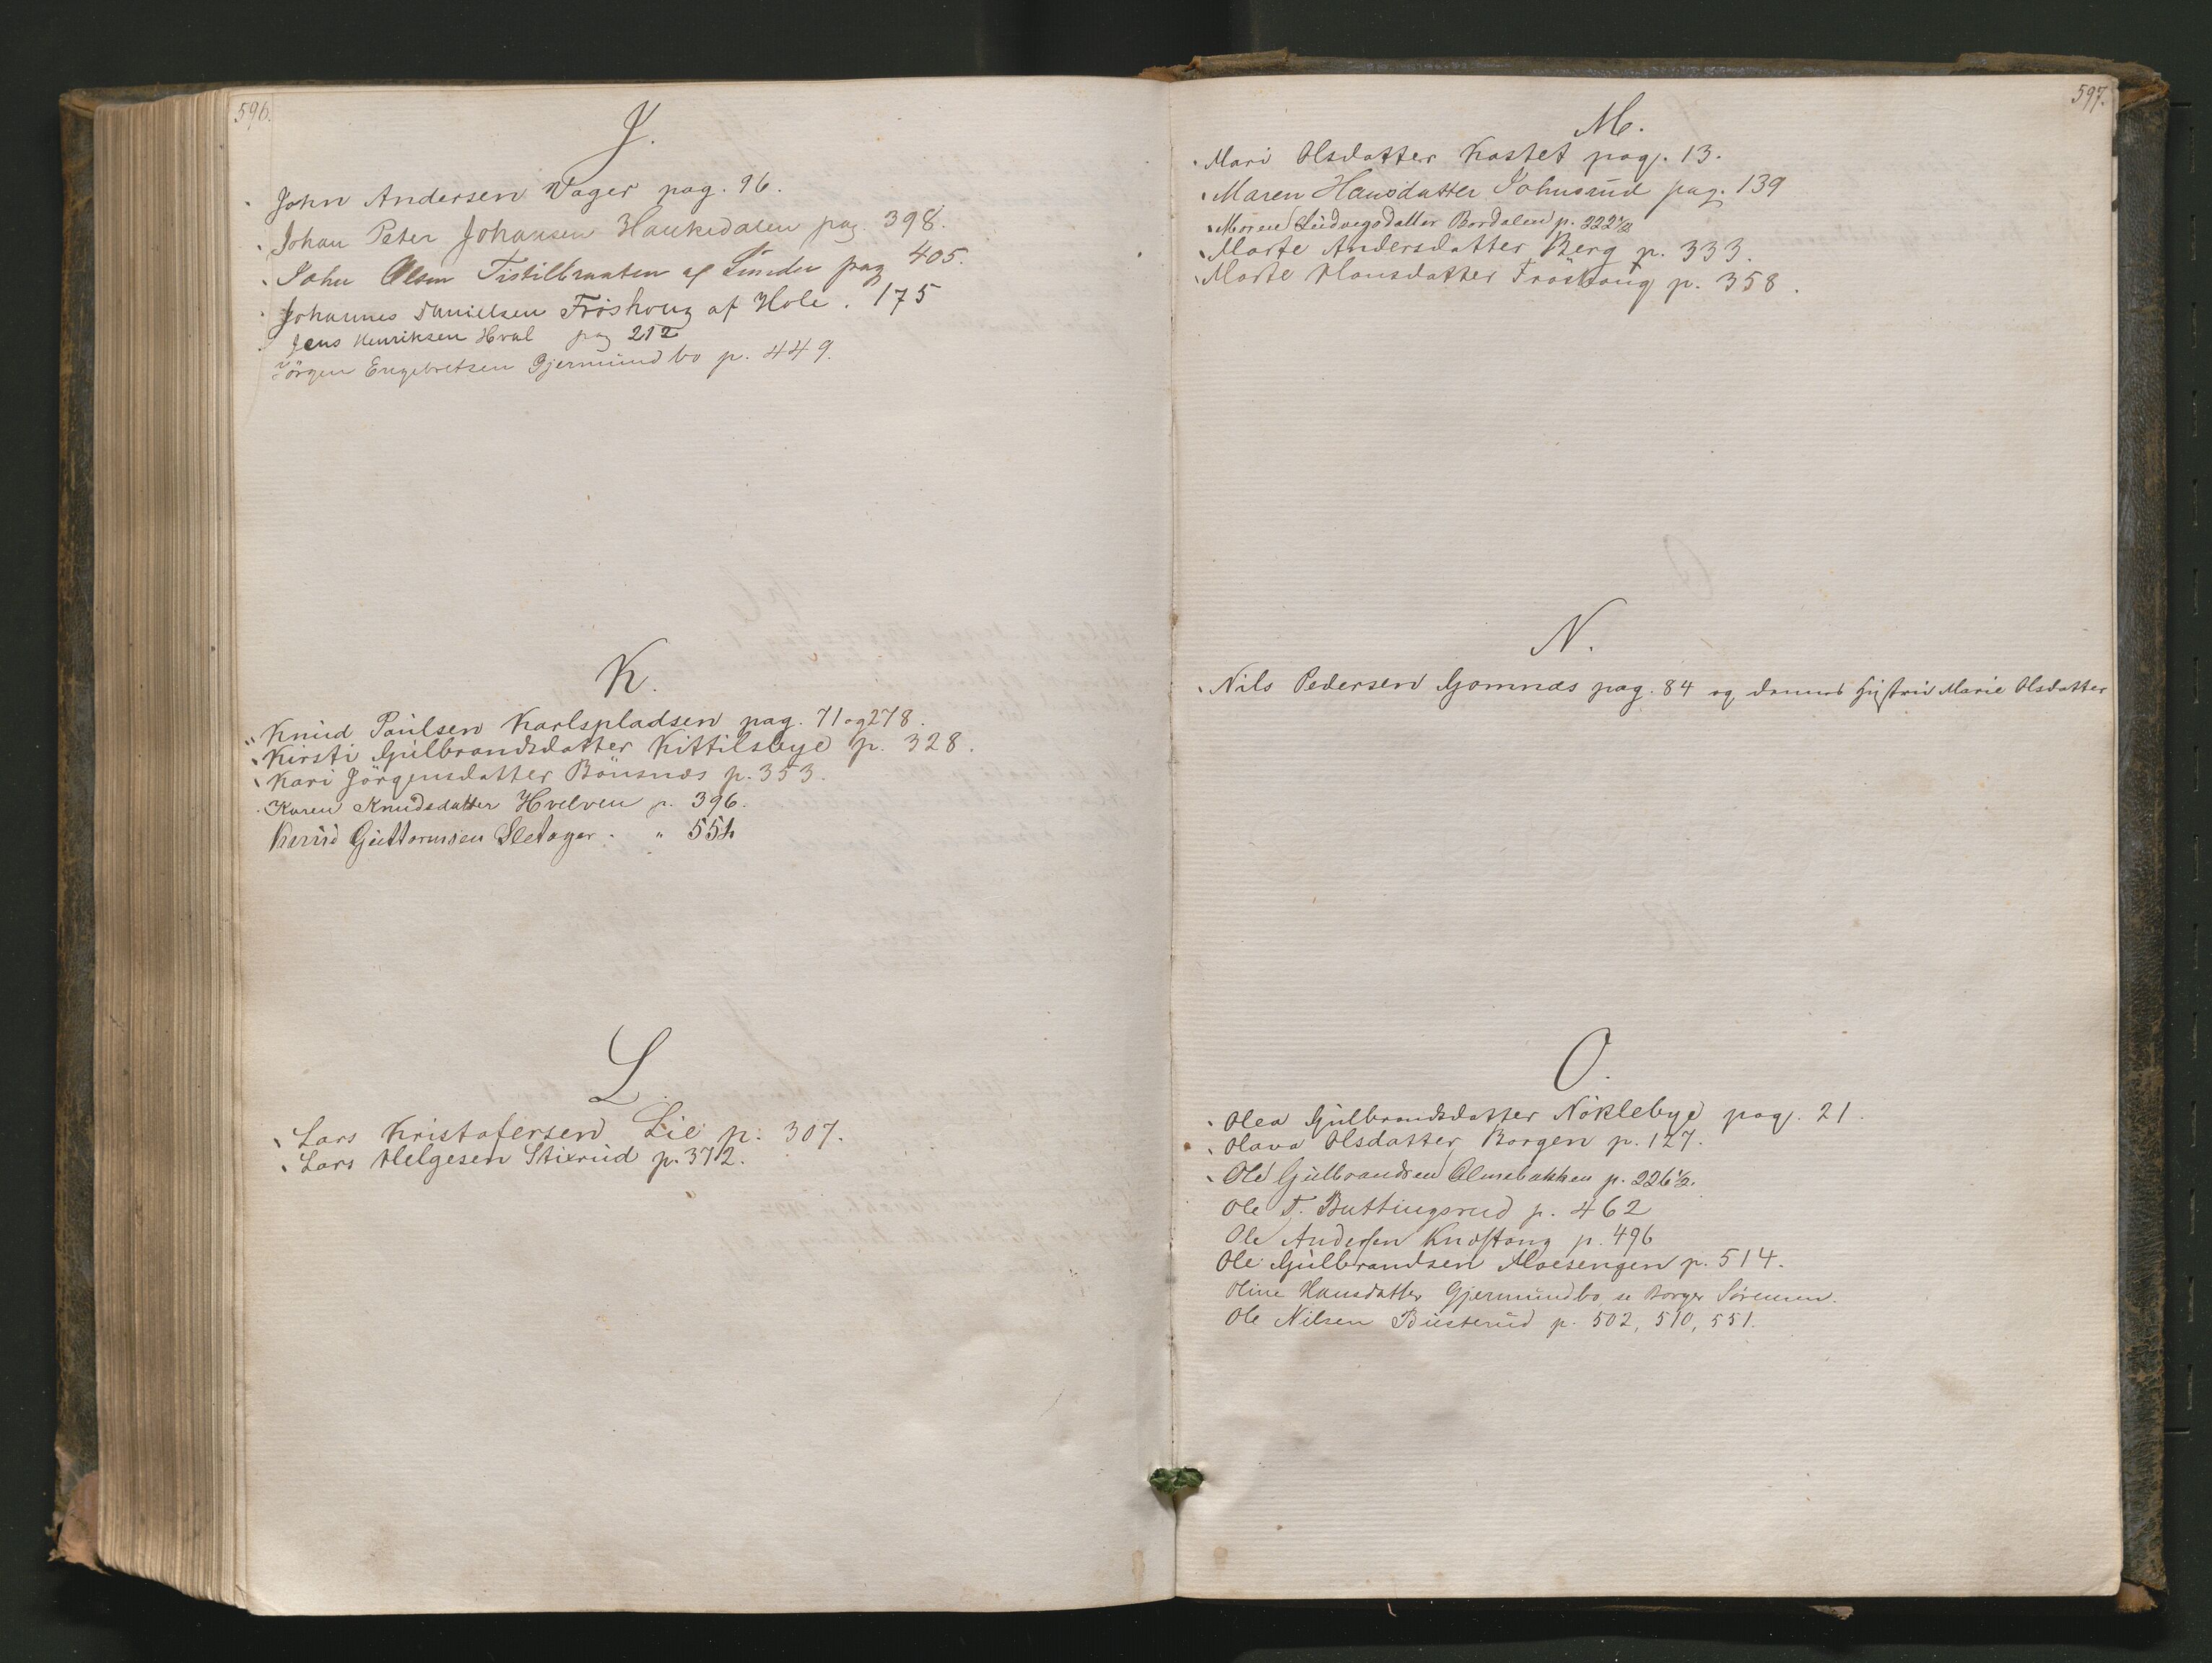 596.
J.
John Andersen Vager pag. 96.
Johan Peter Johansen Haukedalen pag 398.
John Olsen Tistilbraaten af Limder pag 405.
Johannes Danielsen Fröshoug af Hole. 175
Jens Henriksen Hval pag 212
Jörgen Engebretsen Gjermundbo p. 449.
K.
Knud Paulsen Karlspladsen pag. 71 og 278.
Kirsti Gulbrandsdatter Kittilsbye p. 328.
Kari Jörgensdatter Bönsnæs p. 353.
Karen Knudsdatter Hvelven p. 396.
Knud Guttormsen Sletager. " 554
L.
Lars Kristofersen Lie p. 307.
Lars Helgesen Stixrud p. 372.
597.
M.
Mari Olsdatter Kastet pag. 13.
Maren Hansdatter Johnsrud pag. 139
Maren Ludvegsdatter Bordalen p. 222 1/2
Marte Andersdatter Berg p. 333.
Marte Hansdatter Fröshoug p. 358.
N.
Nils Pedersen Gomnæs pag. 84 og dennes Hustru Marie Olsdatter
O.
Olea Gulbrandsdatter Nöklebye pag. 21.
Olava Olsdatter Borgen p. 127.
Ole Gulbrandsen Almebakken p. 226 1/2.
Ole T. Buttingsrud p. 462
Ole Andersen Knestang p. 496
Ole Gulbrandsen Moesengen p. 514.
Oline Hansdatter Gjermundbo se Borger Sörensen.
Ole Nilsen Busterud p. 502, 510, 551.